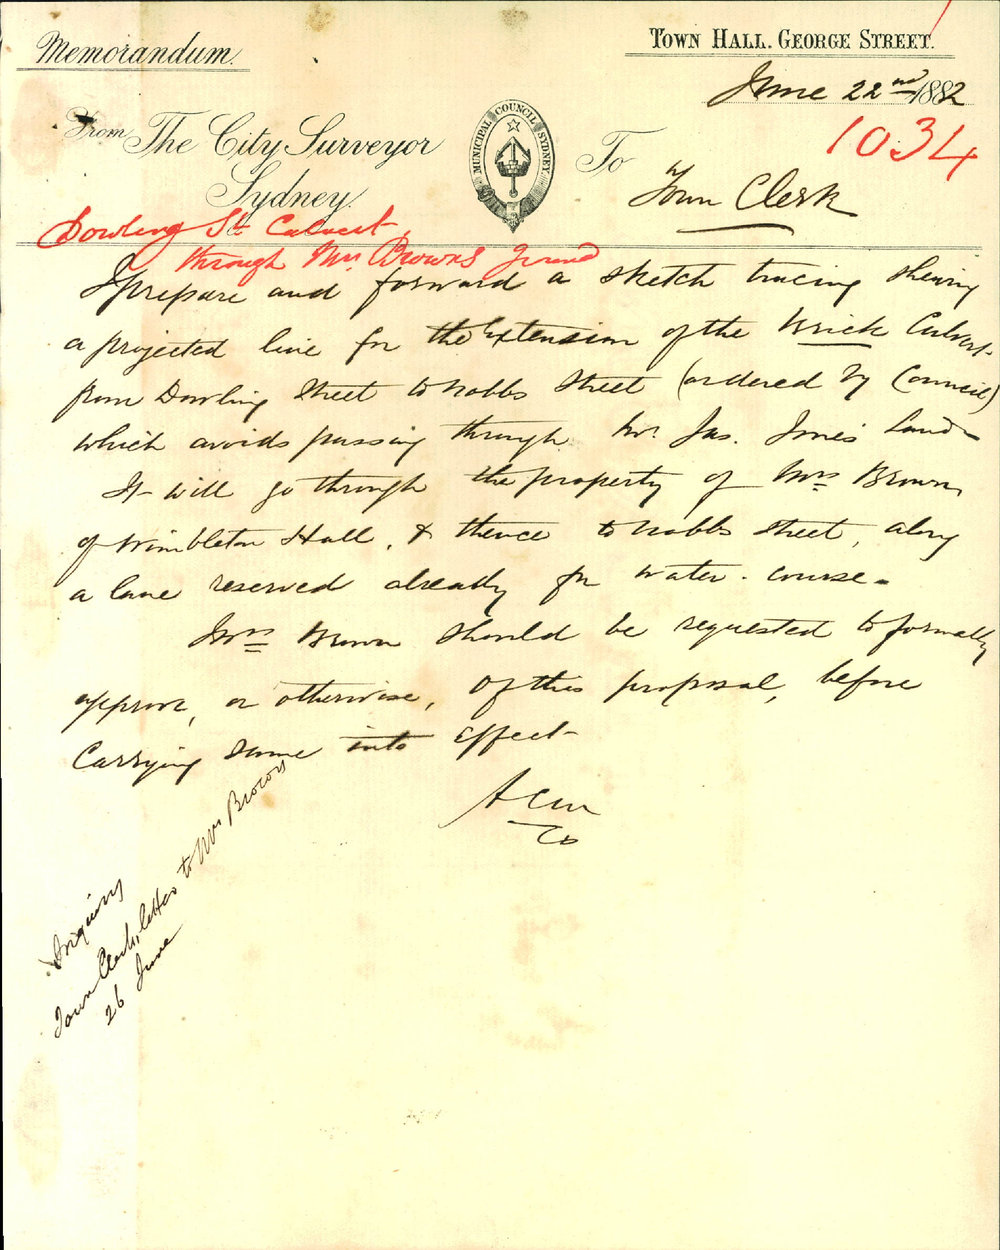 Memorandum.
TOWN HALL. GEORGE STREET.
June 22nd 1882
1034
From The City Surveyor
Sydney.
MUNICIPAL COUNCIL SYDNEY
To
Town Clerk
Dowling St. Culvert,
through Mrs Browns ground
I prepare and forward a sketch tracing shewing
a projected line for the Extension of the Brick Culvert
from Dowling Street to Nobbs Street (ordered by Council)
which avoids passing through Mr. Jas. Jones' Land-
It will go through the property of Mrs Brown
of Wimbleton Hall, & thence to Nobbs Street, along
a lane reserved already for water-course-
Mrs Brown should be requested to formally
approve, or otherwise, of this proposal, before
Carrying same into Effect-
Inquiry
Town Clerk, letter to Mrs Brown
26 June